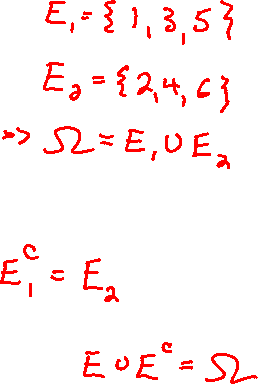 E₁ = {1, 3, 5}
E₂ = {2, 4, 6}
=> Ω = E₁ ∪ E₂
E₁ᶜ = E₂
E ∪ Eᶜ = Ω